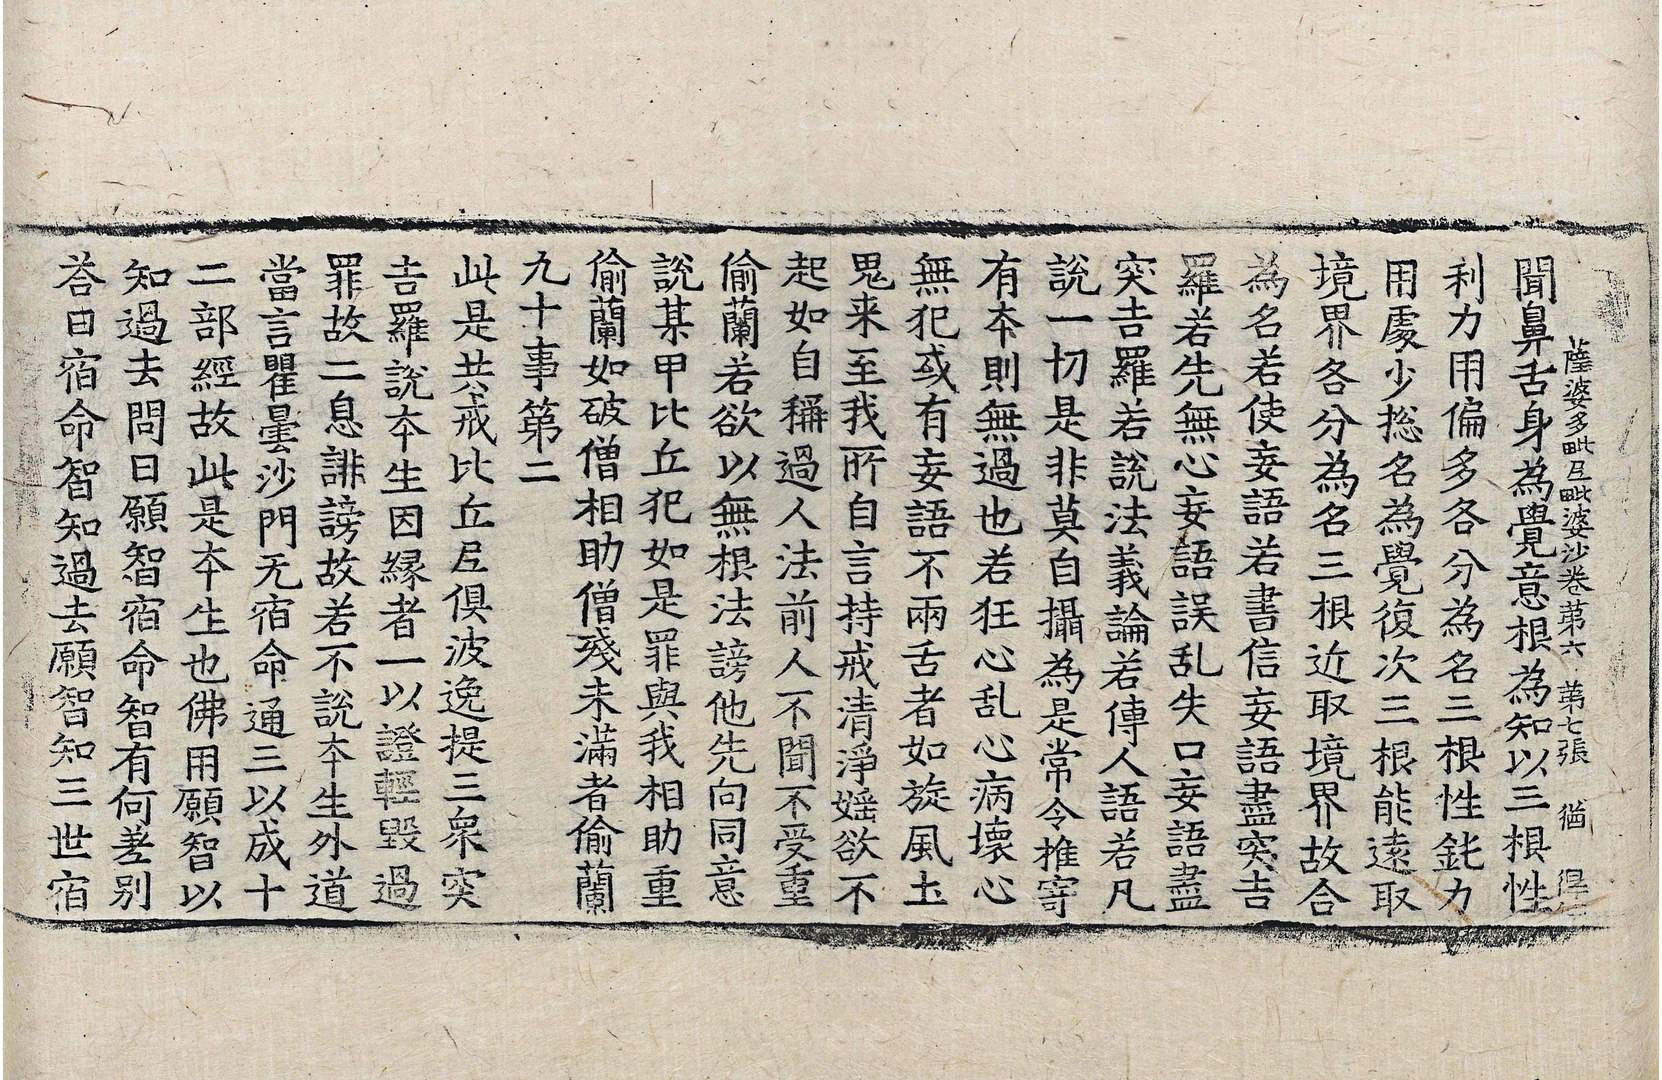 薩婆多毗尼毗婆沙卷第六 第七張 猶
聞鼻舌身為覺意根為知以三根性
利力用偏多各分為名三根性鈍力
用處少捴名為覺復次三根能遠取
境界各分為名三根近取境界故合
為名若使妄語若書信妄語盡突吉
羅若先無心妄語誤乱失口妄語盡
突吉羅若說法義論若傳人語若凡
說一切是非莫自攝為是常令推寄
有夲則無過也若狂心乱心病壞心
無犯或有妄語不兩舌者如旋風土
鬼来至我所自言持戒清淨婬欲不
起如自稱過人法前人不聞不受重
偷蘭若欲以無根法謗他先向同意
說某甲比丘犯如是罪與我相助重
偷蘭如破僧相助僧殘未滿者偷蘭
九十事第二
此是共戒比丘尼俱波逸提三衆突
吉羅說夲生因緣者一以證輕毀過
罪故二息誹謗故若不說夲生外道
當言瞿曇沙門无宿命通三以成十
二部經故此是夲生也佛用願智以
知過去問曰願智宿命智有何差別
荅曰宿命智知過去願智知三世宿